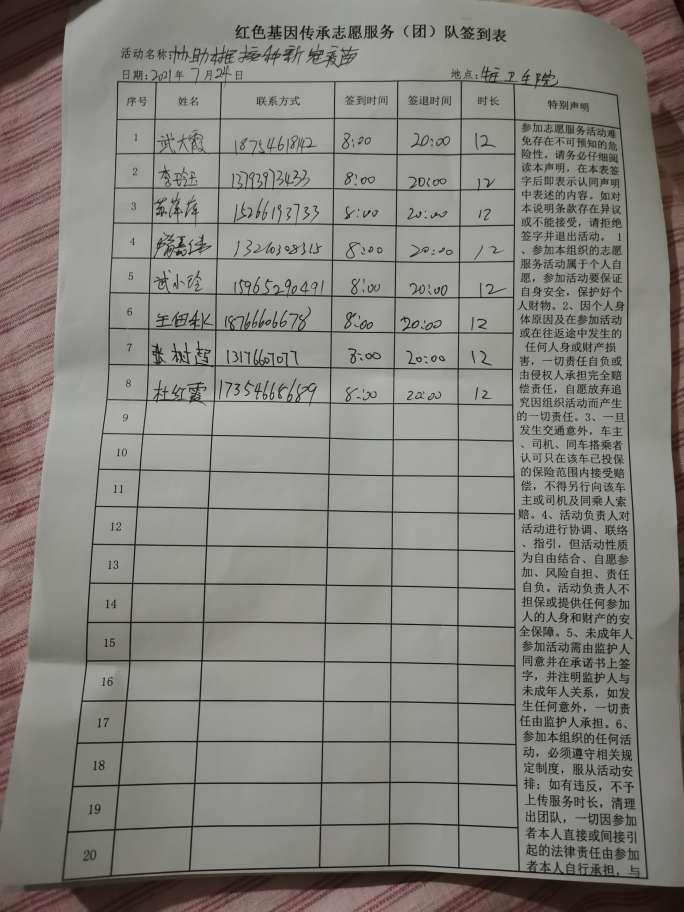 红色基因传承志愿服务（团）队签到表
活动名称:协助 接种新冠疫苗
日期:2021年7月24日 地点: 卫生院
序号 姓名 联系方式 签到时间 签退时间 时长 特别声明
1 武大霞 18754618142 8:00 20:00 12
2 李玲玉 13793973433 8:00 20:00 12
3 萍萍 15266193733 8:00 20:00 12
4 13210308315 8:00 20:00 12
5 武小玲 15965290491 8:00 20:00 12
6 王 18766606678 8:00 20:00 12
7 张树智 8:00 20:00 12
8 杜红霞 17354668689 8:00 20:00 12
9
10
11
12
13
14
15
16
17
18
19
20
参加志愿服务活动难
免存在不可预知的危
险性。请务必仔细阅
读本声明，在本表签
字后即表示认同声明
中表述的内容。如对
本说明条款存在异议
或不能接受，请拒绝
签字并退出活动。 1
、参加本组织的志愿
服务活动属于个人自
愿，参加活动要保证
自身安全，保护好个
人财物。2、因个人身
体原因及在参加活动
或在往返途中发生的
任何人身或财产损
害，一切责任自负或
由侵权人承担完全赔
偿责任，自愿放弃追
究因组织活动而产生
的一切责任。3、一旦
发生交通意外，车主
、司机、同车搭乘者
认可只在该车已投保
的保险范围内接受赔
偿，不得另行向该车
主或司机及同乘人索
赔。4、活动负责人对
活动进行协调、联络
、指引，但活动性质
为自由结合、自愿参
加、风险自担、责任
自负。活动负责人不
担保或提供任何参加
人的人身和财产的安
全保障。5、未成年人
参加活动需由监护人
同意并在承诺书上签
字，并注明监护人与
未成年人关系，如发
生任何意外，一切责
任由监护人承担。6、
参加本组织的任何活
动，必须遵守相关规
定制度，服从活动安
排；如有违反，不予
上传服务时长，清理
出团队，一切因参加
者本人直接或间接引
起的法律责任由参加
者本人自行承担，与